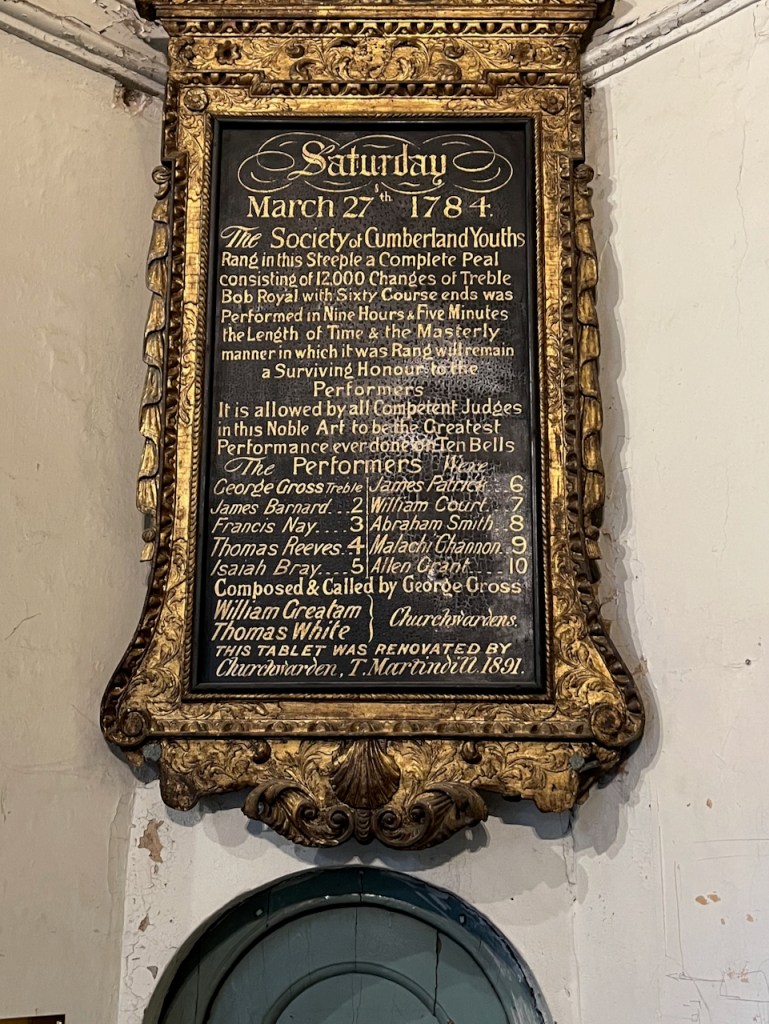 Saturday
March 27th 1784.
The Society of Cumberland Youths
Rang in this Steeple a Complete Peal
consisting of 12,000 Changes of Treble
Bob Royal with Sixty Course ends was
Performed in Nine Hours & Five Minutes
the Length of Time & the Masterly
manner in which it was Rang will remain
a Surviving Honour to the
Performers
It is allowed by all Competent Judges
in this Noble Art to be the Greatest
Performance ever done on Ten Bells
The Performers Were
George Gross Treble James Patrick 6
James Barnard 2 William Court 7
Francis Nay 3 Abraham Smith 8
Thomas Reeves 4 Malachi Channon 9
Isaiah Bray 5 Allen Grant 10
Composed & Called by George Gross
William Greatam
Thomas White } Churchwardens.
THIS TABLET WAS RENOVATED BY
Churchwarden, T. Martindill 1891.